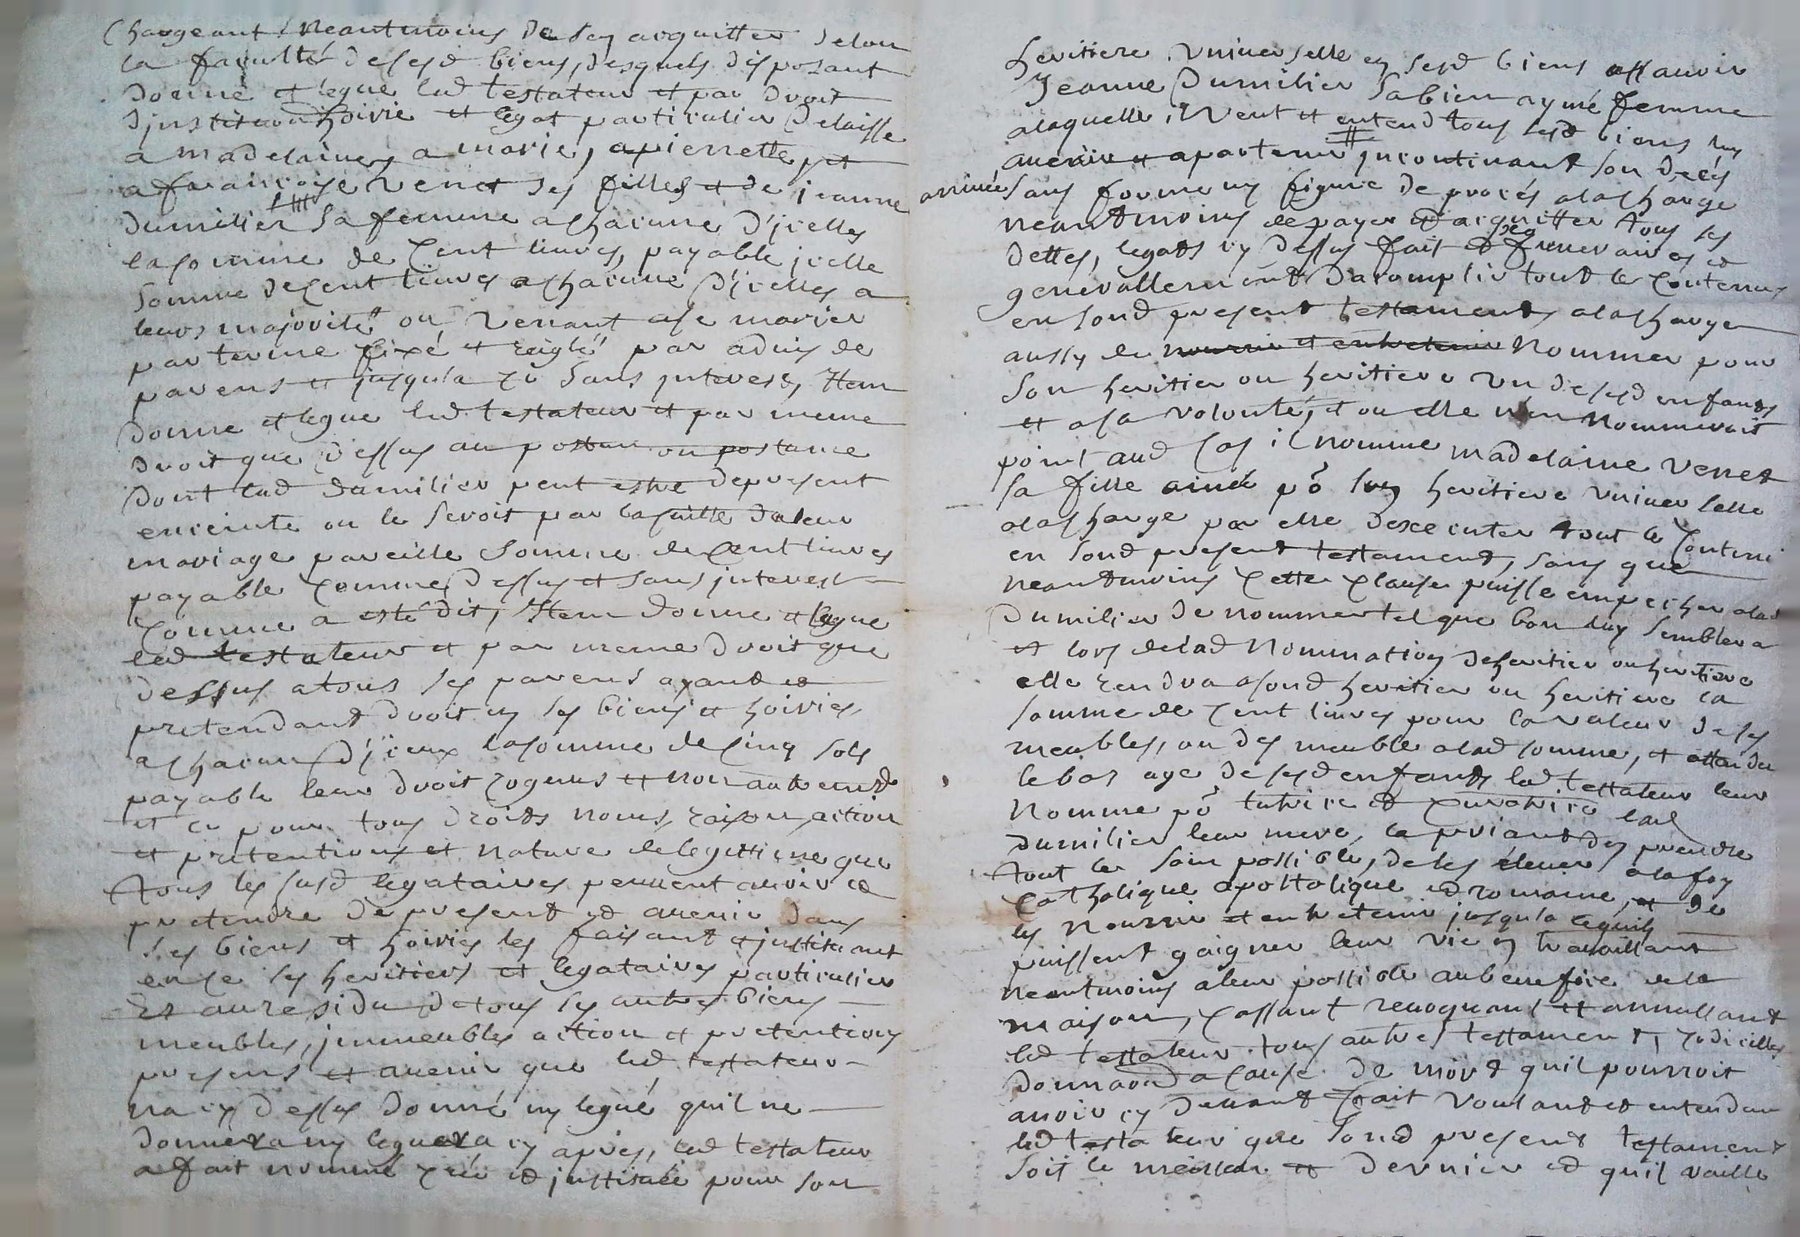 Chargeant neantmoins de sen acquitter selon
la faculté de sesd biens, desquels disposant
donne et legue led testateur et par droit
djnstitution hoirie et legat particulier delaisse
a madelaine, a marie, a pierrette, et
a francoise venet ses filles et de jeanne
dumilier sa femme a chacune d'jcelles
la somme de Cent livres, payable jcelle
somme de Cent livres a chacune d'jcelles a
leurs majorité ou venant a se marier
par terme fixé et reiglé par advis de
parens et jusqu'a ce sans jnterest, Item
donne et legue led testateur et par meme
droit que dessus au postume ou postume
dont lad dumilier peut estre de present
enceinte ou le seroit par la suitte de leur
mariage pareille somme de Cent livres
payable Comme dessus et sans jnterest
Comme a esté dit, Item donne et legue
led testateur et par meme droit que
dessus a tous ses parens ayant et
pretendant droit en ses biens et hoiries,
a chacun d'jceux la somme de Cinq sols
payable leur droit Cogneus et non autrement
et ce pour tous droits noms, raison, action
et pretentions et nature de legittime que
tous les susd legataires peuvent avoir et
pretendre de present et avenir dans
ses biens et hoiries les faisant et jnstituant
en ce ses heritiers et legataires particulier
Et au residu de tous ses autres biens
meubles, jmmeubles action et pretentions
presens et avenir que led testateur
na cy dessus donné ny legué quil ne
donnera ny leguera cy apres, led testateur
a fait nommé Créé et jnstitué pour son
heritiere universelle en sesd biens assavoir
Jeanne Dumilier sa bien aymé femme
a laquelle, veut et entend tous lesd biens luy
avenir et apartenir jncontinant son deces
arrivée sans forme ny figure de procés a la charge
neantmoins de payer et acquitter tous ses
dettes, legats cy dessus fait et ses funeraires et
generallement daccomplir tout le Contenus
en sond present testament, a la charge
aussy de nourrir et entretenir nommer pour
son heritier ou heritiere un de sesd enfants
et a sa volonté, et ou elle nen nommeroit
point aud Cas il nomme madelaine venet
sa fille ainée po son heritiere universelle
a la charge par elle dexecuter tout le Contenu
en sond present testament, sans que
neantmoins Cette Clause puisse empecher a lad
Dumilier de nommer tel que bon luy semblera
et lors de lad nomination de heritier ou heritiere
elle rendra a sond heritier ou heritiere la
somme de Cent livres pour la valeur de ses
meubles, ou des meuble a lad somme, et attendu
le bas age de sesd enfants led testateur leur
nomme po tutrice et Curatrice lad
Dumilier leur mere, la priant den prendre
tout le soin possible, de les elever a la foy
Catholique apostolique et romaine, et de
les nourrir et entretenir jusqu'a lequils
puissent gaigner leur vie en travaillant
neantmoins a leur possible au benefice de la
maison, Cassant revoquant et annullant
led testateur tous autres testament, Codicilles
donnaond a Cause de mort quil pourroit
avoir cy devant fait voulant et entendan
led testateur que sond present testament
soit le meilleur et dernier et quil vaille